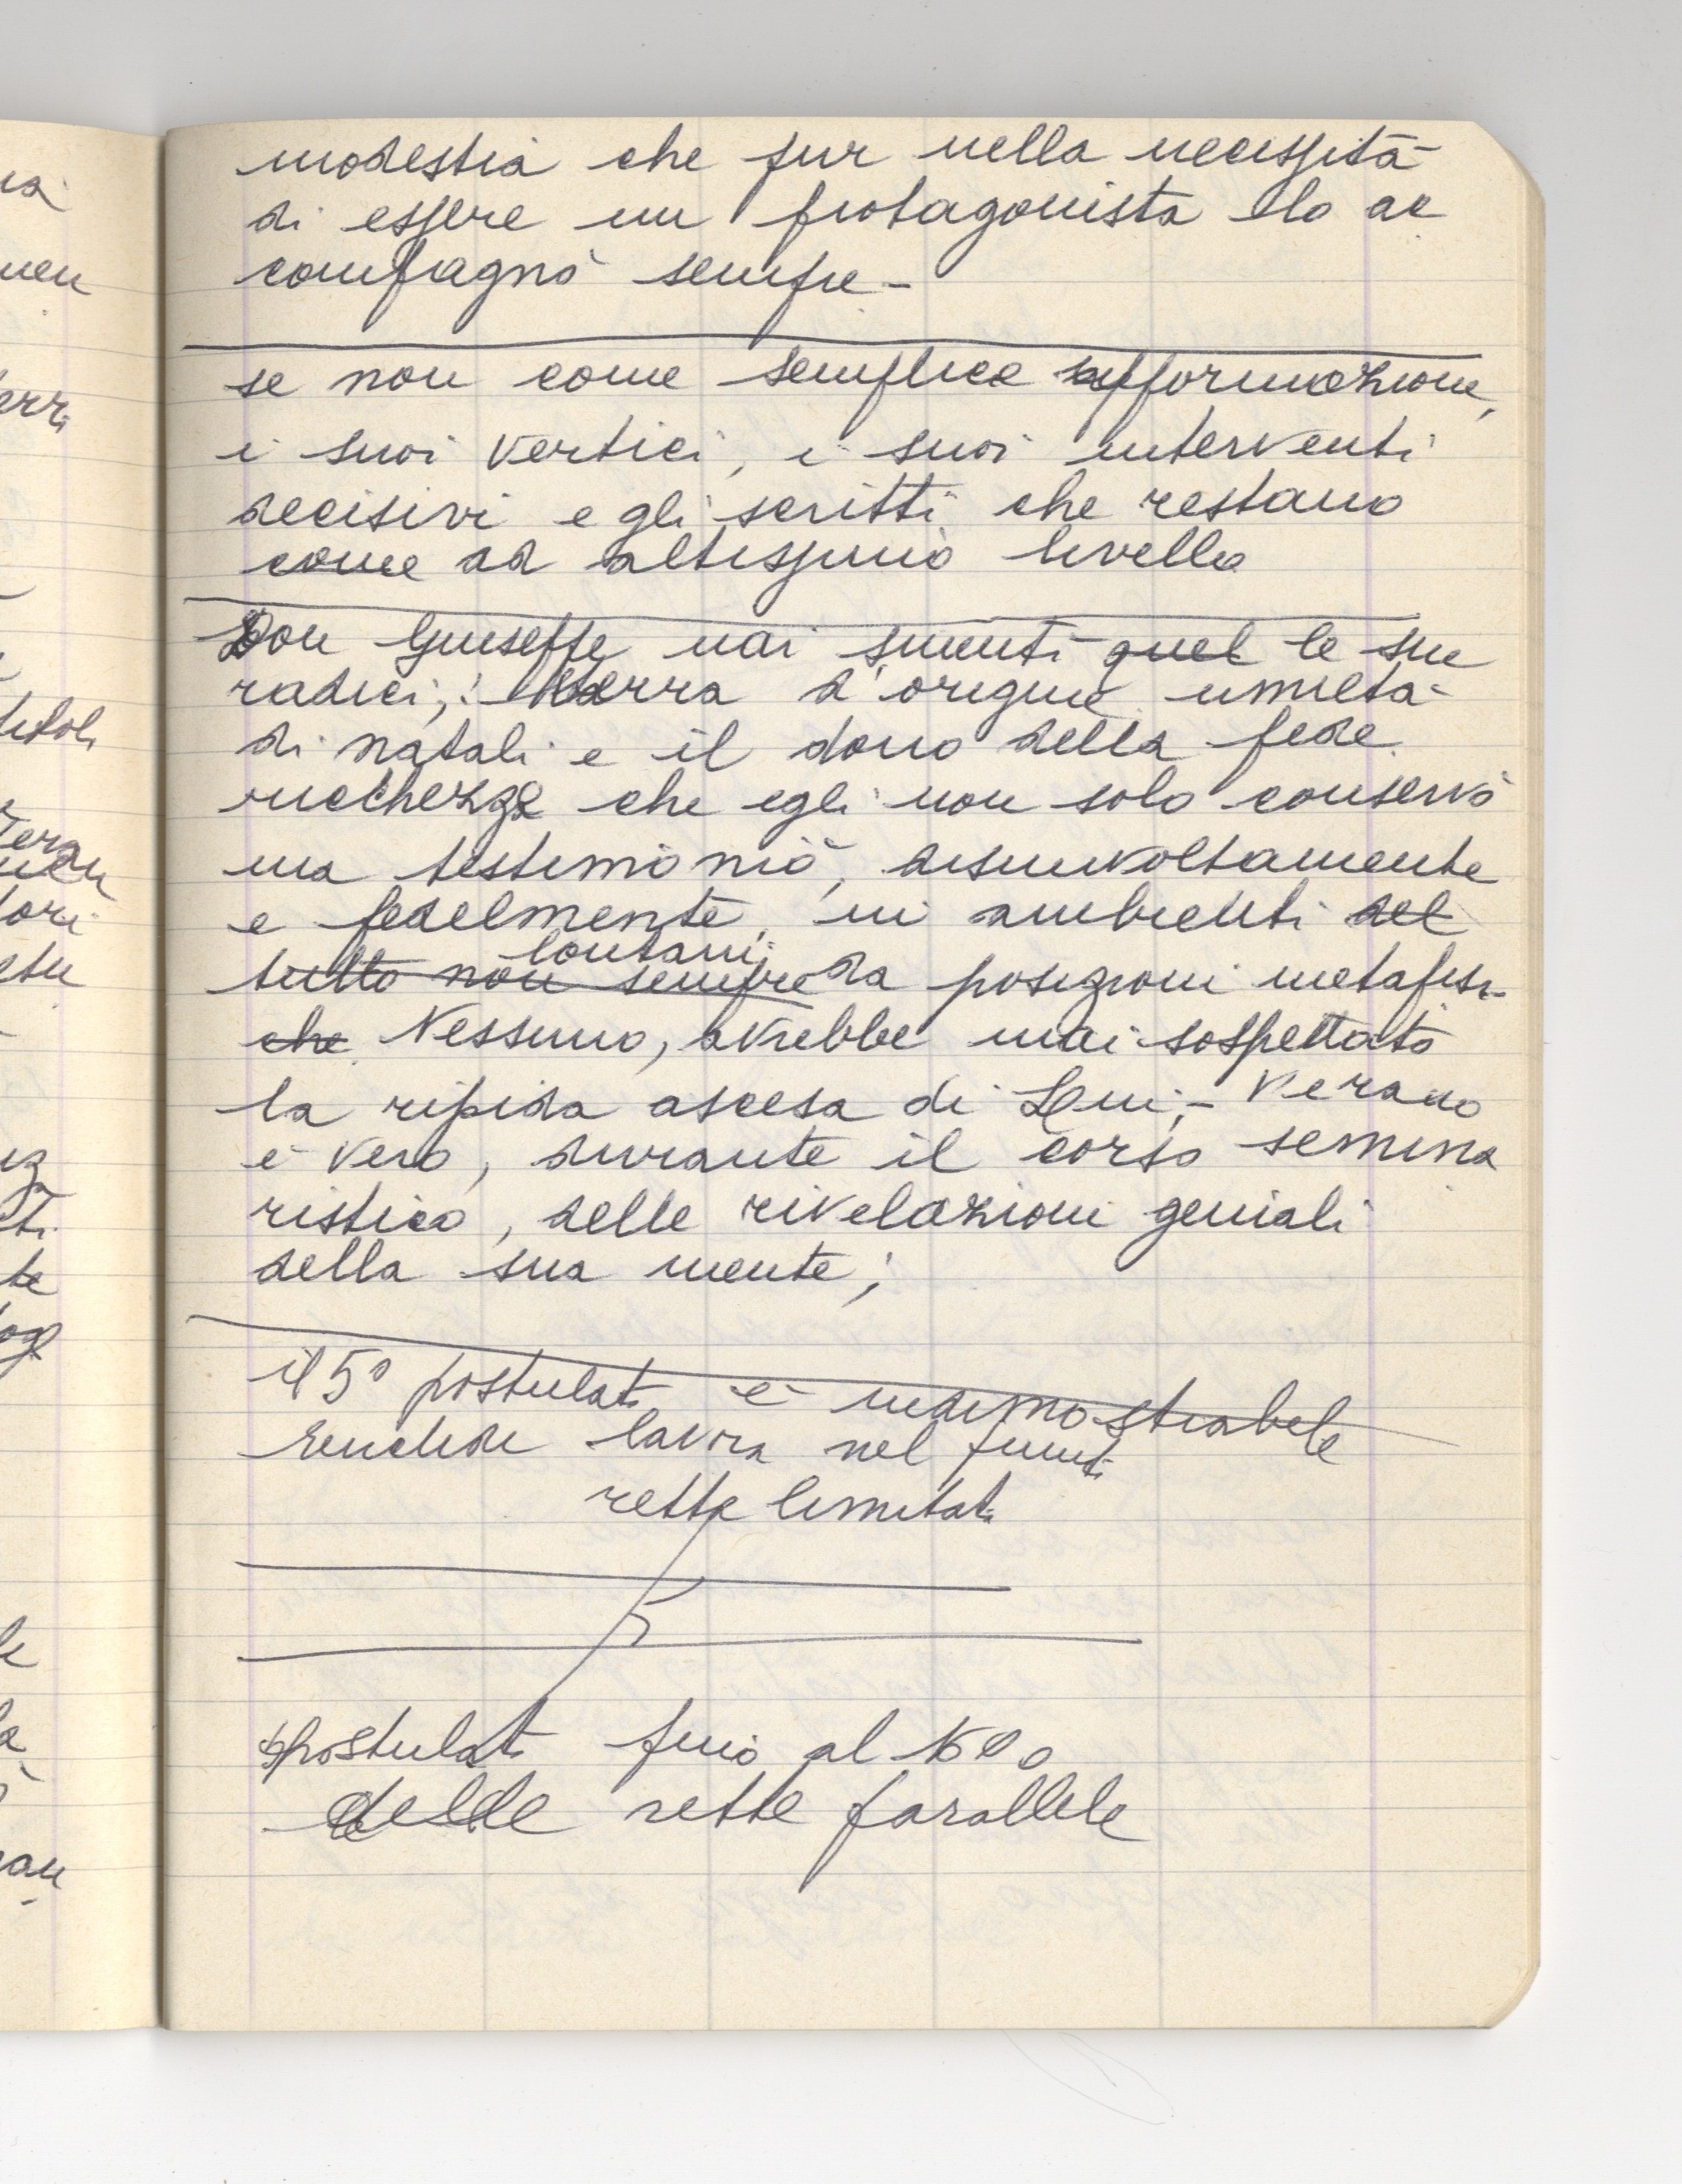 modestia che pur nella necessità
di essere un protagonista lo ac
compagnò sempre -
se non come semplice informazione,
i suoi vertici, i suoi interventi
decisivi e gli scritti che restano
come ad altissimo livello
Don Giuseppe mai smentì quel le sue
radici; terra d'origine umiltà
di natali e il dono della fede
ricchezze che egli non solo conservò
ma testimoniò, disinvoltamente
e fedelmente, in ambienti del
lontani
tutto non sempre da posizioni metafisi-
che Nessuno, avrebbe mai sospettato
la ripida ascesa di Lui,- Verano
è vero, durante il corso semina
ristico, delle rivelazioni geniali
della sua mente;
il 5° postulato è indimostrabile
Euclide lavora nel finito
rette limitate
postulato fino al
delle rette parallele